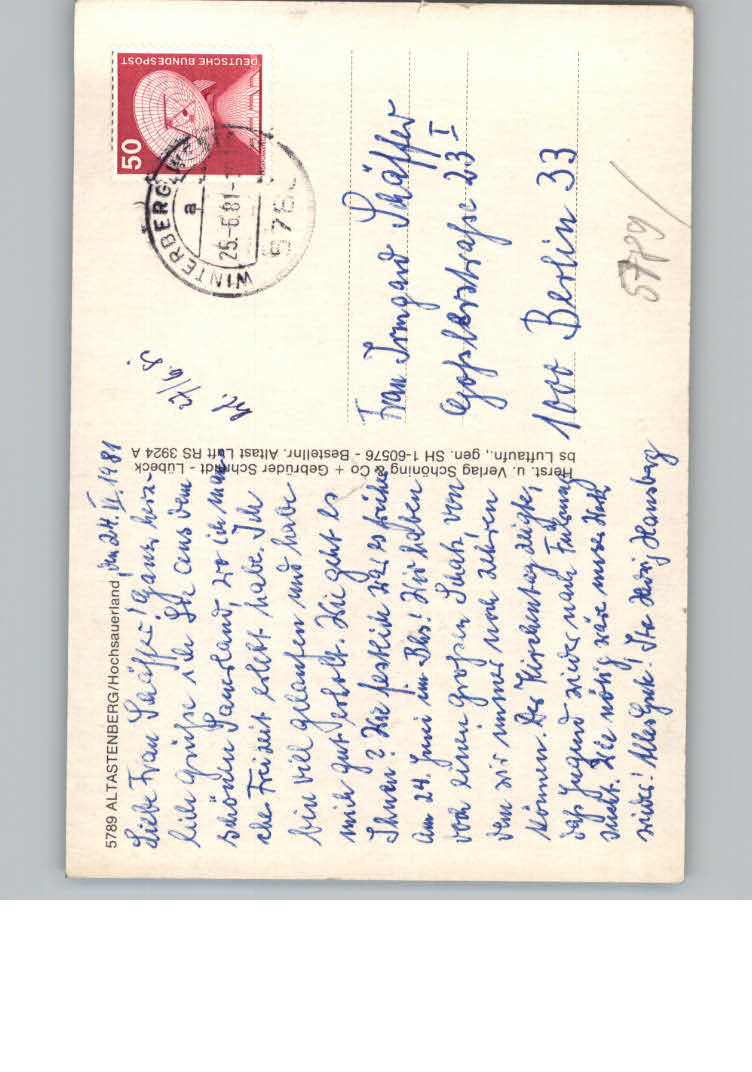 5789 ALTASTENBERG/Hochsauerland, den 24. VI. 1981
Liebe Frau Schäffer! Ganz herz-
lich grüße ich Sie aus dem
schönen Sauerland, wo ich man-
che Freizeit erlebt habe. Ich
bin viel gelaufen und habe
mich gut erholt. Wie geht es
Ihnen? Wie festlich war es früher
am 24. Juni im Bhs! Wir haben
doch einen großen Schatz von
dem wir immer noch zehren
können. Der Kirchentag zeigte,
daß Jugend wieder nach Führung
sucht. Wie nötig wäre unser Werk
wieder! Alles Gute! Ihre Hansberg
Herst. u. Verlag Schöning & Co + Gebrüder Schmidt - Lübeck
bs Luftaufn., gen. SH 1-60576 - Bestellnr. Altast Luft RS 3924 A
27/6.
DEUTSCHE BUNDESPOST
50
WINTERBERG
a
25.-6.81
578
Frau Irmgard Schäffer
Goßlerstraße 23 I
1000 Berlin 33
5789